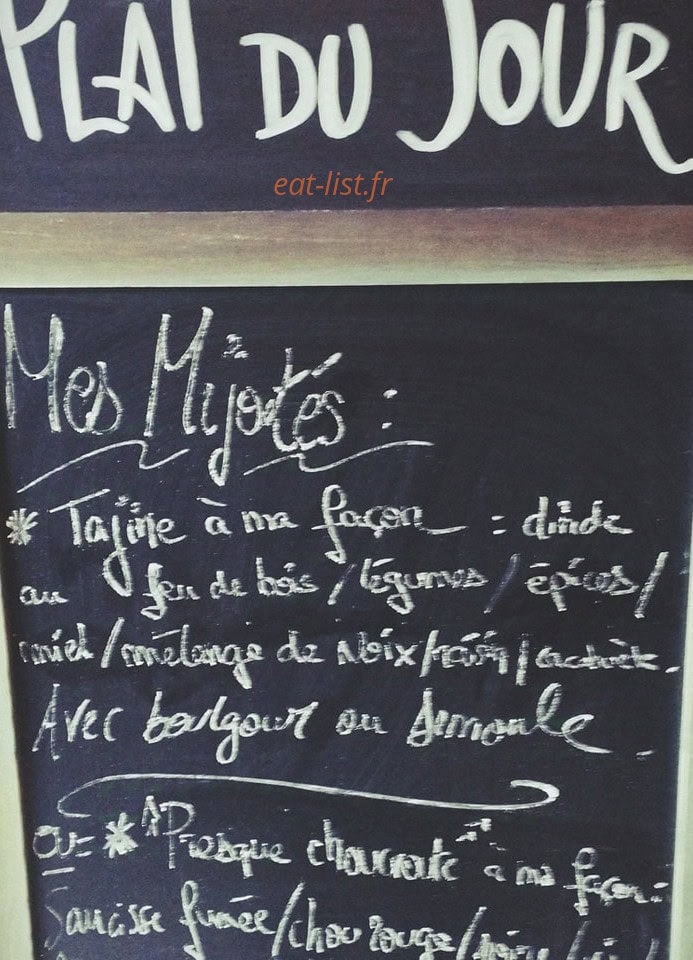 PLAT DU JOUR
eat-list.fr
Mes Mijotés :
* Tajine à ma façon : dinde
au feu de bois / légumes / épices /
miel / mélange de noix / raisin /
Avec boulgour ou semoule.
ou = * "Presque choucroute" à ma façon :
Saucisse fumée / chou rouge /